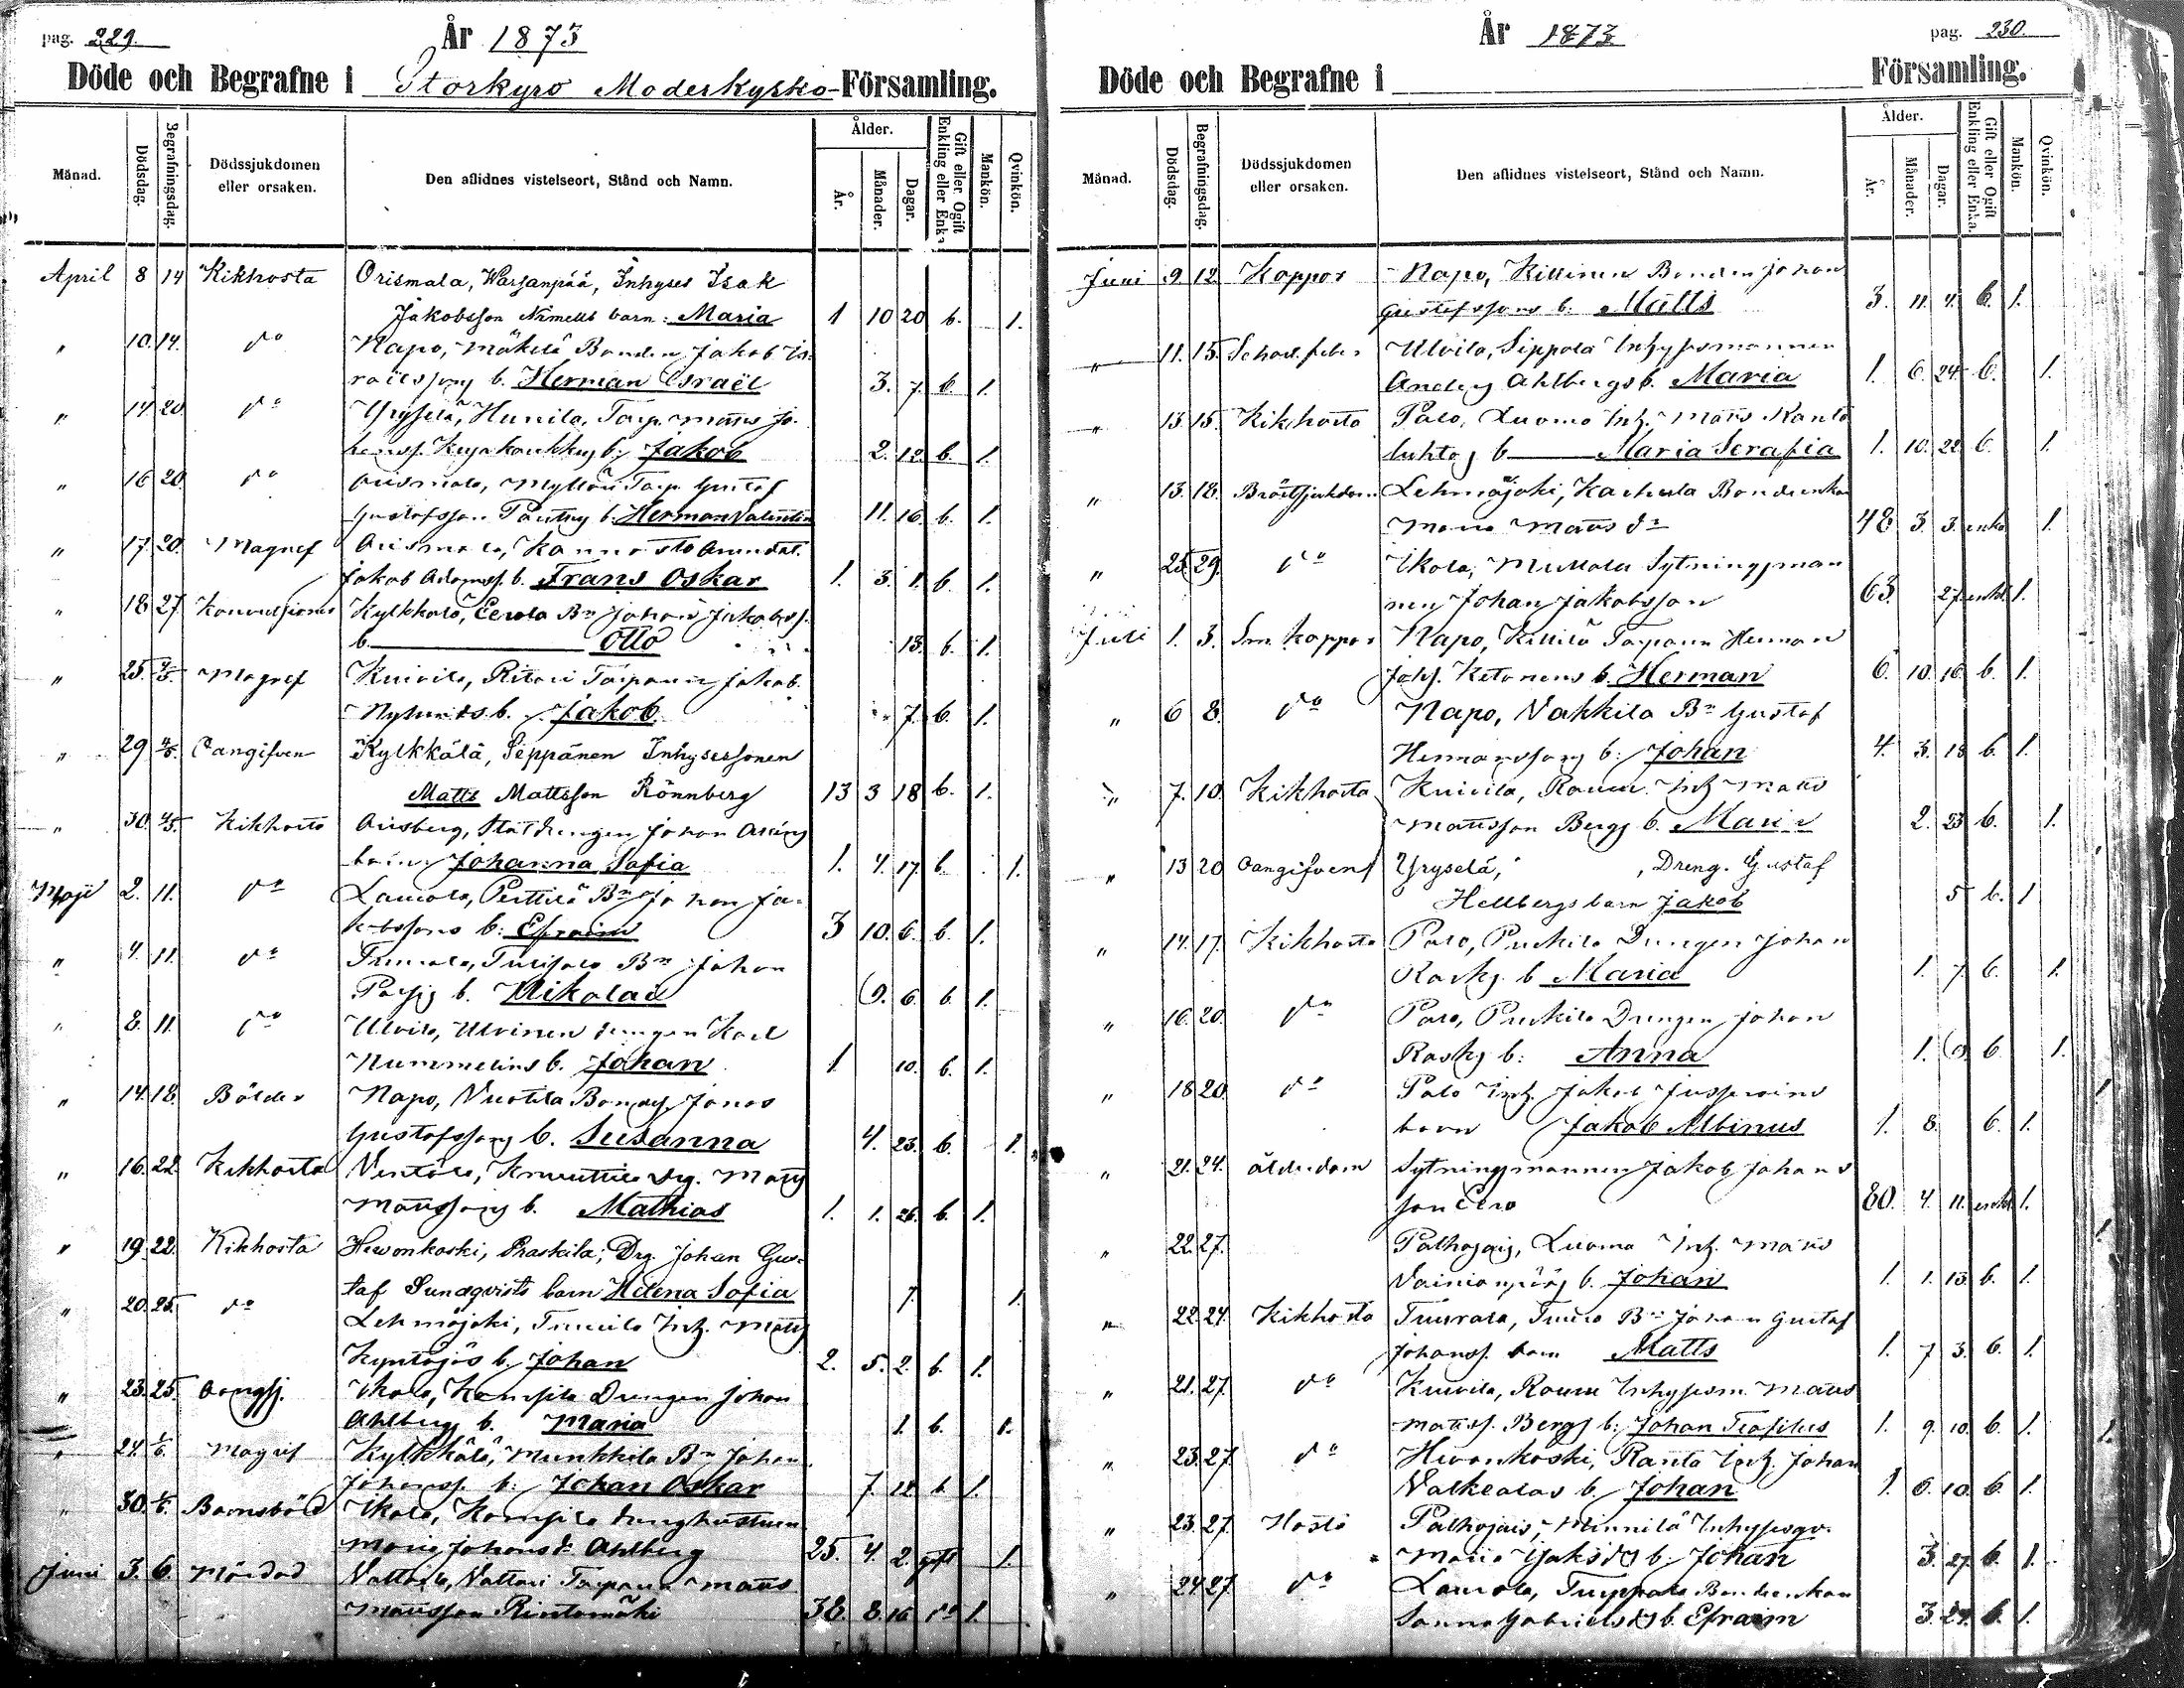 pag. 229.
År 1873
Döde och Begrafne i Storkyro Moderkyrko-Församling.
Månad.
Dödsdag.
Begrafningsdag.
Dödssjukdomen eller orsaken.
Den aflidnes vistelseort, Stånd och Namn.
Ålder.
År.
Månader.
Dagar.
Gift eller Ogift Enkling eller Enka
Mankön.
Qvinkön.
April 8 14 Kikhosta Orismala, Inhyses Isak
Jakobsson barn: Maria 1 10 20 b. 1.
" 10. 14. do Napo, Mäkelä Bonden Jakob Is-
raëlssons b. Herman Israël 3. 7. b. 1.
" 14 20 do Hunila, Torp. Matts Jo-
b. Jakob 2. 12. b. 1.
" 16 20 do Torp. Gustaf
Gustafsson b. Herman Valentin 11. 16. b. 1.
" 17. 20. Magref Orismala,
Jakob Adamss. b. Frans Oskar 1. 3. 1. b. 1.
" 18 27. Konvulsioner Kylkkälä, Eerola Bn Johan Jakobss.
b. Otto 13. b. 1.
" 25. 4/5. Magref Kuivila, Ritari Torparen Jakob
Nylunds b. Jakob 7. b. 1.
" 29 4/5. Oangifven Kylkkälä, Seppänen Inhysessonen
Matts Mattsson Rönnberg 13 3 18 b. 1.
" 30. 4/5. Kikhosta Orisberg, Statdrengen Johan
barn Johanna Sofia 1. 4. 17. b. 1.
Maji 2. 11. do Laurola, Perttilä Bn Johan Ja-
kobssons b: Efraim 3 10. 6. b. 1.
" 4. 11. do Bn Johan
b. Nikolai 9. 6. b. 1.
" 8. 11. do Ulvila, Ulvinen drengen Karl
Nummelins b. Johan 1. 10. b. 1.
" 14. 18. Bölder Napo, Vuotila Jonas
Gustafssons b. Susanna 4. 23. b. 1.
" 16. 22. Kikhosta Knuuttila Dg. Matts
Mattssons b. Mathias 1. 1. 26. b. 1.
" 19. 22. Kikhosta Hevonkoski, Praskila, Drg. Johan Gus-
taf Sundqvists barn Helena Sofia 7. 1.
" 20. 25. do Lehmäjoki, Inh. Matts
b. Johan 2. 5. 2. b. 1.
" 23. 25. Ikola, Kempila Drengen Johan
Ahlbergs b. Maria 1. b. 1.
" 24. 1/6. Magref Kylkkälä, Munkkila Bn Johan
Johanss. b. Johan Oskar 7. 12. b. 1.
" 30. 1/6. Barnsbörd Ikola, Kempila
Maria Johansdr Ahlberg 25. 4. 2. gift 1.
Juni 3. 6. Mördad Vattari Torparen Matts
Mattsson Rintamäki 38. 8. 16 do 1.
År 1873
pag. 230.
Döde och Begrafne i Församling.
Månad.
Dödsdag.
Begrafningsdag.
Dödssjukdomen eller orsaken.
Den aflidnes vistelseort, Stånd och Namn.
Ålder.
År.
Månader.
Dagar.
Gift eller Ogift Enkling eller Enka.
Mankön.
Qvinkön.
Juni 9. 12. Koppor Napo, Killinen Bonden Johan
Gustafssons b: Matts 3. 11. 4. b. 1.
" 11. 15. Ulvila, Sippola Inhysesmannen
Anders Ahlbergs b. Maria 1. 6. 24. b. 1.
" 13. 15. Kikhosta Palo, Luoma Inh. Matts Kanto
luhtas b Maria Serafia 1. 10. 22. b. 1.
" 13. 18. Bröstsjukdom Lehmäjoki, Kaurila Bondeenkan
Maria Matts dr 48 3. 3. enka 1.
" 25. 29. do Ikola, Mullola Sytningsman
nen Johan Jakobsson 63. 27. enkl. 1.
Juli 1. 3. Sm. koppor Napo, Killilä Torparen Herman
Johs. Ketonens b. Herman 6. 10. 16. b. 1.
" 6 8. do Napo, Vakkila Bn Gustaf
Hermanssons b: Johan 4. 3. 18 b. 1.
" 7. 10. Kikhosta Kuivila, Inh Matts
Mattsson Bergs b. Maria 2. 23 b. 1.
" 13 20 Oangifvens Yryselä, , Dreng. Gustaf
Hellbergs barn Jakob 5 b. 1
" 14. 17. Kikhosta Palo, Drengen Johan
Rasks b Maria 1. 7. b. 1.
" 16. 20. do Palo, Drengen Johan
Rasks b: Anna 1. 9. b. 1.
" 18 20. do Palo Inh. Jakob
barn Jakob Albinus 1. 8. b. 1.
" 21. 24. ålderdom Sytningsmannen Jakob Johans
son Eero 80. 4. 11. enkl. 1.
" 22. 27. Palhojais, Luoma Inh. Matts
Vainionpääs b. Johan 1. 1. 13. b. 1.
" 22. 24. Kikhosta Tuurala, Bn Johan Gustaf
Johanss. barn Matts 1. 7 3. b. 1.
" 21. 27. do Kuivila, Inhysesm. Matts
Mattss. Bergs b: Johan Teofilus 1. 9. 10. b. 1.
" 23. 27. do Hevonkoski, Ranta Inh. Johan
Valkealas b. Johan 1. 6. 10. b. 1.
" 23. 27. Hosta Palhojais, Minnilä Inhysesqv.
Maria b. Johan 3. 27. b. 1.
" 24 27 do Laurola, Bondeenkan
Sanna Gabrielsdrs b. Efraim 3. 24. b. 1.